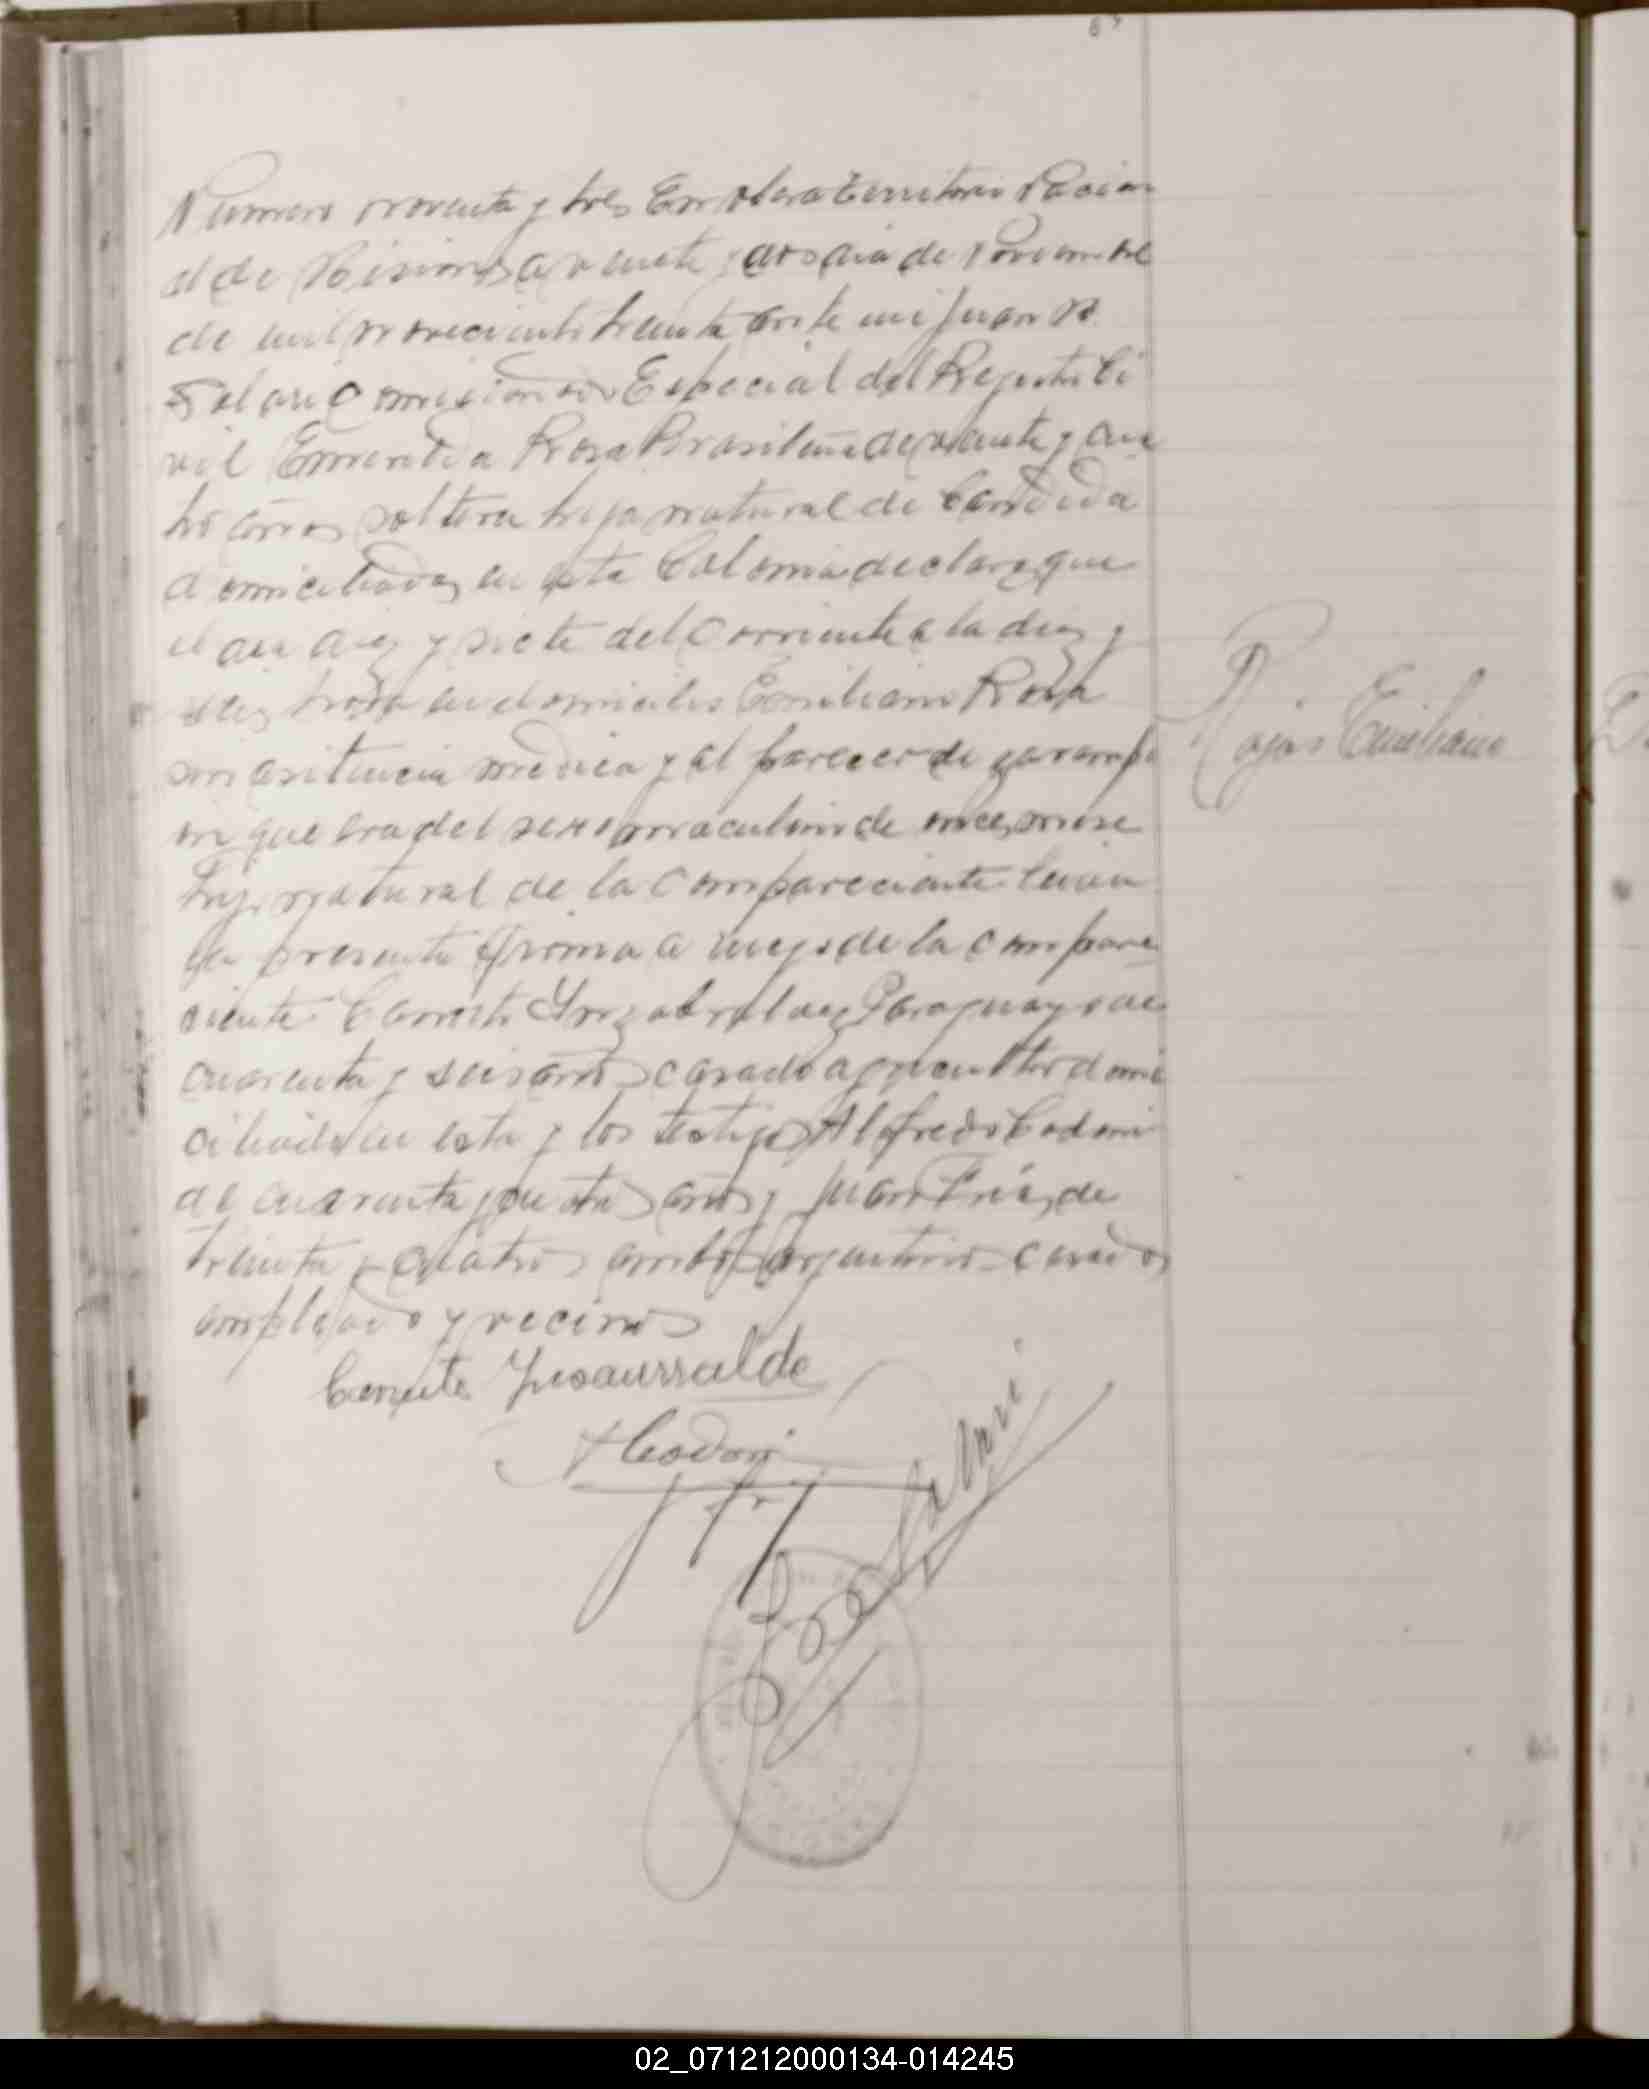 Numero noventa y tres En Obera Territorio Nacion
al de Misiones a veinte y dos dia de Noviembre
de mil novecientos treinta ante mi Juan
Comisionado Especial del Registro Ci
vil Rosa Brasileña de veinte y cua
tro años soltera hija natural de Candida
domiciliada en esta Colonia declara que
el dia diez y siete del corriente a la diez y
seis hora en domicilio Emiliano Rosa
sin asitencia medica y al parecer de sarampi
on que era del sexo masculino de once mese
hijo natural de la compareciente
la presente firma a ruego de la compare
ciente Paraguayo de
cuarenta y seis años casado agricultor domi
ciliado en esta y los testigos Alfredo Codori
de cuarenta y años y Juan de
treinta y cuatro ambos argentinos casados
empleado y vecinos
Ysaurralde
Codori
Rojas Emiliano
02_071212000134-014245